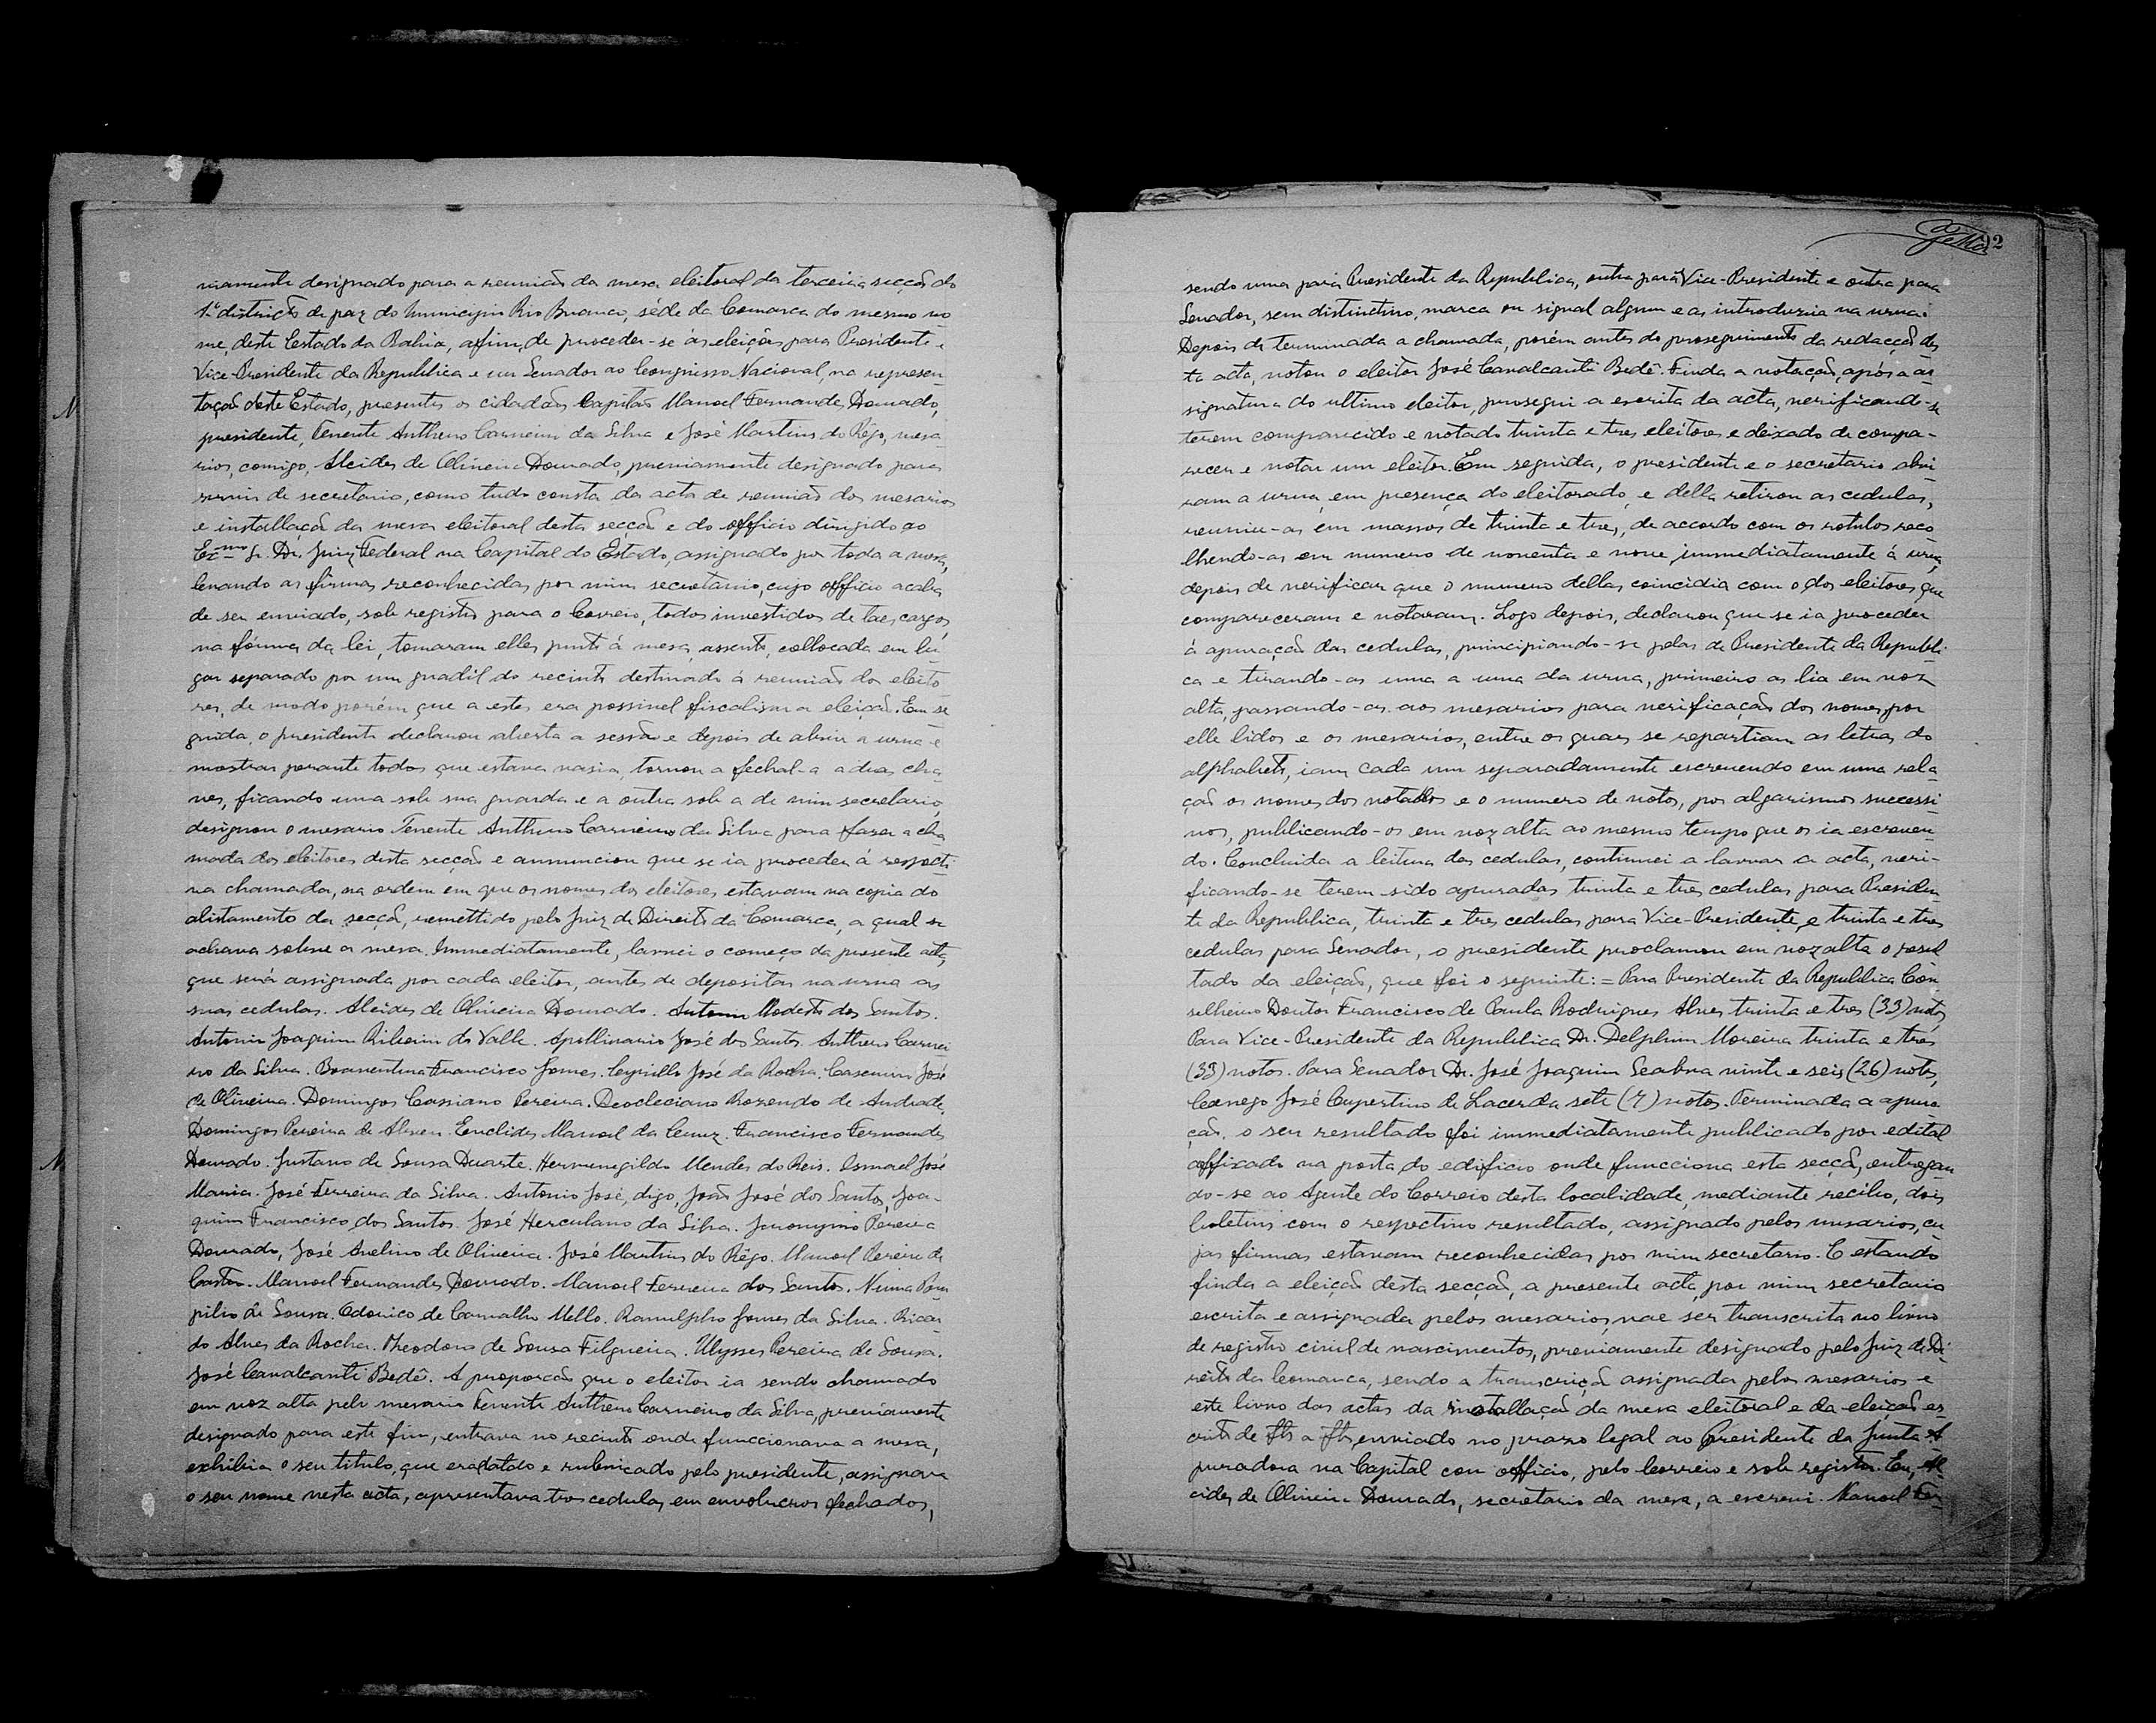 viamente designado para a reunião da mesa eleitoral da terceira secção do
1.º districto de paz do Municipio Rio Branco, séde da Comarca do mesmo no
me, deste Estado da Bahia, afim, de proceder-se ás eleições para Presidente e
Vice-Presidente da Republica e um Senador ao Congresso Nacional, na represen-
tação deste Estado, presentes os cidadãos Capitão Manoel Fernandes Dourado,
presidente, Tenente Anthero Carneiro da Silva e José Martins do Rêgo, mesa
rios, comigo, Alcides de Oliveira Dourado, previamente designado para
servir de secretario, como tudo consta da acta de reunião dos mesarios
e installação da mesa eleitoral desta secção e do officio dirigido ao
Exmo Sr. Dr. Juiz Federal na Capital do Estado, assignado por toda a mesa,
levando as firmas reconhecidas por mim secretario, cujo officio acaba
de ser enviado, sob registro para o Correio, todos investidos de taes cargos,
na fórma da lei, tomaram elles junto á mesa, assento, collocada em lu
gar separado por um gradil do recinto destinado á reunião dos eleito
res, de modo porém que a estes era possivel fiscalisar a eleição. Em se
guida, o presidente declarou aberta a sessão e depois de abrir a urna e
mostrar perante todos que estava vasia, tornou a fechal-a a duas cha
ves, ficando uma sob sua guarda e a outra sob a de mim secretario,
designou o mesario Tenente Anthero Carneiro da Silva para fazer a cha
mada dos eleitores desta secção e annunciou que se ia proceder á respecti
va chamada, na ordem em que os nomes dos eleitores estavam na copia do
alistamento da secção, remettido pelo Juiz de Direito da Comarca, a qual se
achava sobre a mesa. Immediatamente, lavrei o começo da presente acta,
que será assignada por cada eleitor, antes de depositar na urna as
suas cedulas. Alcides de Oliveira Dourado. Antonio Modesto dos Santos.
Antonio Joaquim Ribeiro do Valle. Apollinario José dos Santos. Anthero Carnei
ro da Silva. Boaventura Francisco Gomes. Cyrillo José da Rocha. Casemiro José
de Oliveira. Domingos Cassiano Pereira. Deocleciano Rozendo de Andrade,
Domingos Pereira de Abreu. Euclides Manoel da Cruz. Francisco Fernandes
Dourado. Gustavo de Sousa Duarte. Hermenegildo Mendes do Reis. Ismael José
Maria. José Ferreira da Silva. Antonio José, digo, João José dos Santos, Joa-
quim Francisco dos Santos. José Herculano da Silva. Jeronymo Pereira
Dourado, José Avelino de Oliveira. José Martins do Rêgo. Manoel Pereira de
Castro. Manoel Fernandes Dourado. Manoel Ferreira dos Santos. Numa Pom
pilio de Sousa. Odorico de Carvalho Mello. Ranulpho Gomes da Silva. Ricar
do Alves da Rocha. Theodoro de Sousa Filgueira. Ulysses Pereira de Sousa.
José Cavalcanti Bedê. A proporção que o eleitor ia sendo chamado
em voz alta pelo mesario Tenente Anthero Carneiro da Silva, previamente
designado para este fim, entrava no recinto onde funccionava a mesa,
exhibia o seu titulo, que era datado e rubricado pelo presidente, assignava
o seu nome nesta acta, apresentava tres cedulas em envolucros fechados,
92
sendo uma para Presidente da Republica, outra para Vice-Presidente e outra para
Senador, sem distinctivo, marca ou signal algum e as introduzia na urna.
Depois de terminada a chamada, porém antes do proseguimento da redacção des
ta acta, votou o eleitor José Cavalcanti Bedê. Finda a votação, após a as
signatura do ultimo eleitor, prosegui a escrita da acta, verificando-se
terem comparecido e votado trinta e tres eleitores e deixado de compa-
recer e votar um eleitor. Em seguida, o presidente e o secretario abri
ram a urna, em presença do eleitorado, e della retirou as cedulas,
reuniu-as em massos de trinta e tres, de accordo com os rotulos reco
lhendo-as em numero de noventa e nove, immediatamente á urna,
depois de verificar que o numero dellas coincidia com o dos eleitores que
compareceram e votaram. Logo depois, declarou que se ia proceder
á apuração das cedulas, principiando-se pelas de Presidente da Republi-
ca e tirando-as uma a uma da urna, primeiro as lia em voz
alta, passando-as aos mesarios para verificação dos nomes por
elle lidos e os mesarios, entre os quaes se repartiam as letras do
alphabeto, iam cada um separadamente escrevendo em uma rela
ção os nomes dos votados e o numero de votos, por algarismos successi
vos, publicando-os em voz alta ao mesmo tempo que os ia escreven
do. Concluida a leitura das cedulas, continuei a lavrar a acta, veri-
ficando-se terem sido apuradas trinta e tres cedulas para Presiden
te da Republica, trinta e tres cedulas para Vice-Presidente, e trinta e tres
cedulas para Senador, o presidente proclamou em voz alta o resul
tado da eleição, que foi o seguinte: = Para Presidente da Republica Con
selheiro Doutor Francisco de Paula Rodrigues Alves trinta e tres (33) votos,
Para Vice-Presidente da Republica Dr. Delphim Moreira trinta e tres
(33) votos. Para Senador Dr. José Joaquim Seabra vinte e seis (26) votos,
Conego José Cupertino de Lacerda sete (7) votos. Terminada a apura
ção, o seu resultado foi immediatamente publicado por edital
affixado na porta do edificio onde funcciona esta secção, entregan
do-se ao Agente do Correio desta localidade, mediante recibo, dois
boletins com o respectivo resultado, assignado pelos mesarios, cu
jas firmas estavam reconhecidas por mim secretario. E estando
finda a eleição desta secção, a presente acta, por mim secretario
escrita e assignada pelos mesarios, vae ser transcrita no livro
de registro civil de nascimentos, previamente designado pelo Juiz de Di
reito da Comarca, sendo a transcrição assignada pelos mesarios e
este livro das actas da installação da mesa eleitoral e da eleição es
crito de fls a fls, enviado no prazo legal ao Presidente da Junta A
puradora na Capital com officio, pelo Correio e sob registro. Eu, Al
cides de Oliveira Dourado, secretario da mesa, a escrevi. Manoel Fer-